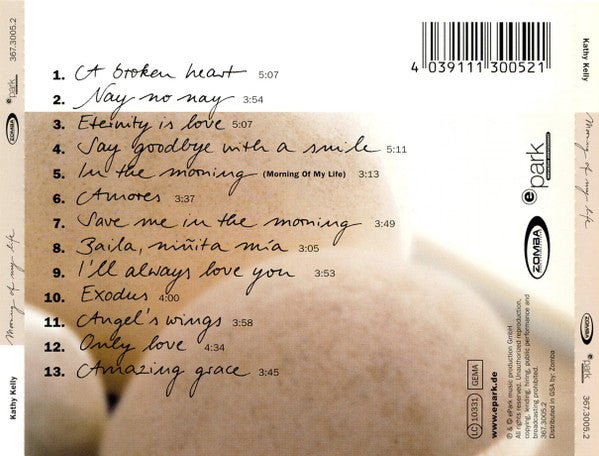 367.3005.2
epark
ZOMBA
Morning of my life
Kathy Kelly
1. A broken heart 5:07
2. Nay no nay 3:54
3. Eternity is love 5:07
4. Say goodbye with a smile 5:11
5. In the morning (Morning Of My Life) 3:13
6. Amores 3:37
7. Save me in the morning 3:49
8. Baila, niñita mía 3:05
9. I'll always love you 3:53
10. Exodus 4:00
11. Angel's wings 3:58
12. Only love 4:34
13. Amazing grace 3:45
4 039111 300521
epark
ZOMBA
LC 10331 GEMA
www.epark.de
℗ & © ePark music production GmbH
All rights reserved. Unauthorized reproduction,
copying, lending, hiring, public performance and
broadcasting prohibited.
367.3005.2
Distributed in GSA by: Zomba
Kathy Kelly
Morning of my life
ZOMBA
epark
367.3005.2